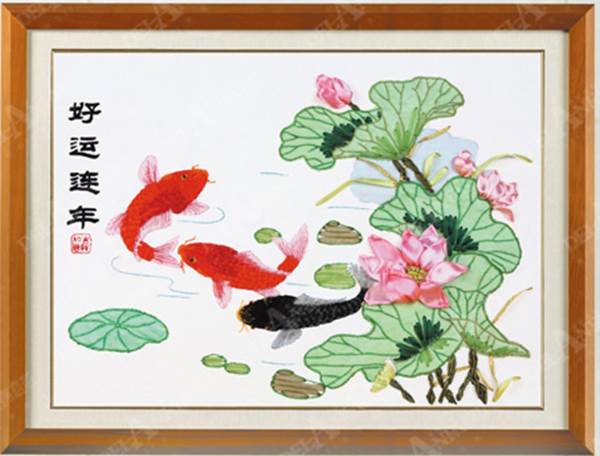 好运连年